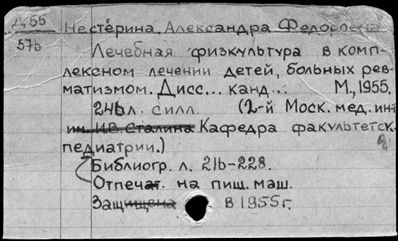 Нестерина, Александра Федоровна
576
Лечебная физкультура в комп-
лексном лечении детей, больных рев-
матизмом. Дисс... канд... М., 1955.
246 л. с илл. (2-й Моск. мед. ин-т
им. И.В. Сталина Кафедра факультетск.
педиатрии.)
Библиогр. л. 216-228.
Отпечат. на пиш. маш.
Защищена в 1955 г.